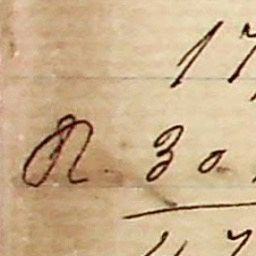 17
R. 30.
47